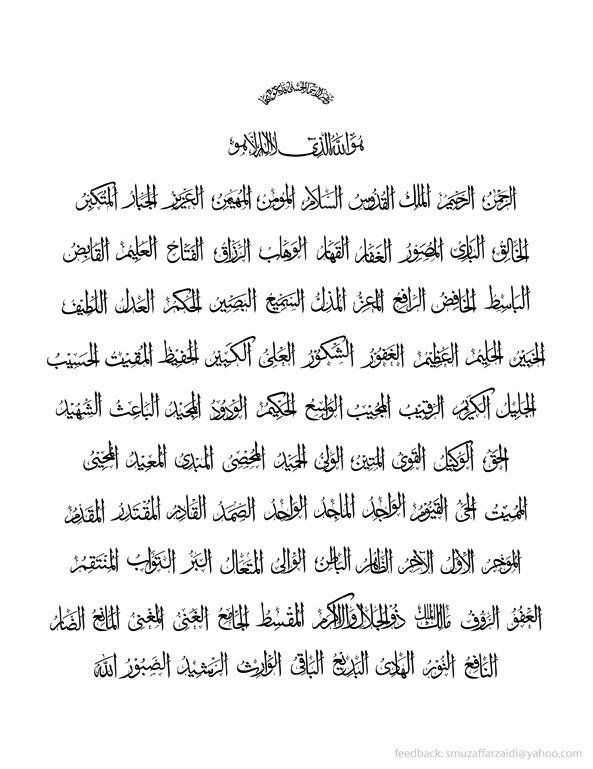 هو الله الذي لا اله الا هو
الرحمن الرحيم الملك القدوس السلام المؤمن المهيمن العزيز الجبار المتكبر
الخالق البارئ المصور الغفار القهار الوهاب الرزاق الفتاح العليم القابض
الباسط الخافض الرافع المعز المذل السميع البصير الحكم العدل اللطيف
الخبير الحليم العظيم الغفور الشكور العلى الكبير الحفيظ المقيت الحسيب
الجليل الكريم الرقيب المجيب الواسع الحكيم الودود المجيد الباعث الشهيد
الحق الوكيل القوى المتين الولى الحميد المحصى المبدئ المعيد المحيى
المميت الحى القيوم الواجد الماجد الواحد الصمد القادر المقتدر المقدم
الموخر الاول الاخر الظاهر الباطن الوالى المتعال البر التواب المنتقم
العفو الروف مالك الملك ذوالجلال والاكرم المقسط الجامع الغنى المغنى المانع الضار
النافع النور الهادى البديع الباقى الوارث الرشيد الصبور الله
feedback: smuzaffarzaidi@yahoo.com